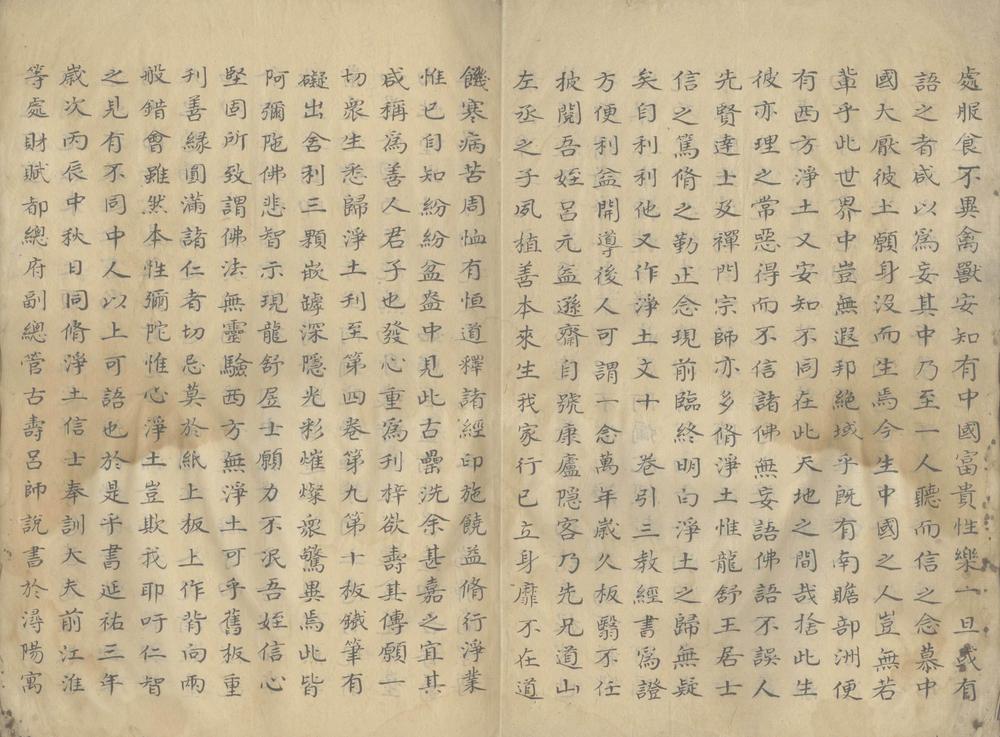 處服食不異禽獸安知有中國富貴性樂一旦或有
語之者咸以為妄其中乃至一人聽而信之念慕中
國大厭彼土願身沒而生焉今生中國之人豈無若
軰乎此世界中豈無遐邦絶域乎旣有南贍部洲便
有西方淨土又安知不同在此天地之間哉捨此生
彼亦理之常惡得而不信諸佛無妄語佛語不誤人
先賢達士及禪門宗師亦多脩淨土惟龍舒王居士
信之篤脩之勤正念現前臨終明白淨土之歸無疑
矣自利利他又作淨土文十卷引三教經書爲證
方便利益開導後人可謂一念萬年歲久板翳不任
披閱吾姪呂元益遜齋自號康廬隱客乃先兄道山
左丞之子夙植善本來生我家行已立身靡不在道
饑寒病苦周恤有恒道釋諸經印施饒益脩行淨業
惟已自知紛紛盆盎中見此古罍洗余甚嘉之宜其
咸稱爲善人君子也發心重爲刊梓欲壽其傳願一
切衆生悉歸淨土刊至第四卷第九第十板鐵筆有
礙出舍利三顆嵌罅深隱光彩熣燦衆驚異焉此皆
阿彌陁佛悲智示現龍舒居士願力不泯吾姪信心
堅固所致謂佛法無靈驗西方無淨土可乎舊板重
刊善縁圓滿諸仁者切忌莫於紙上板上作背向兩
般錯會雖然本性彌陀惟心淨土豈欺我耶吁仁智
之見有不同中人以上可語也於是乎書延祐三年
歲次丙辰中秋日同脩淨土信士奉訓大夫前江淮
等處財賦都總府副總管古壽呂師說書於潯陽寓